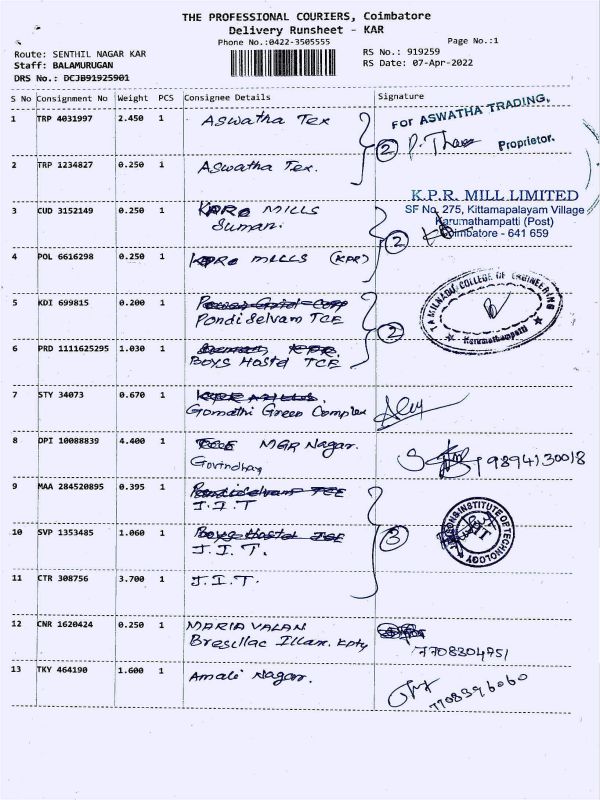 THE PROFESSIONAL COURIERS, Coimbatore
Delivery Runsheet - KAR
Phone No.:0422-3505555
Page No.:1
Route: SENTHIL NAGAR KAR
RS No.: 919259
Staff: BALAMURUGAN
RS Date: 07-Apr-2022
DRS No.: DCJB91925901
S No Consignment No Weight PCS Consignee Details Signature
1 TRP 4031997 2.450 1 Aswatha Tex
FOR ASWATHA TRADING,
2
Proprietor.
2 TRP 1234827 0.250 1 Aswatha Tex.
K.P.R. MILL LIMITED
SF No. 275, Kittamapalayam Village
Karumathampatti (Post)
Coimbatore - 641 659
3 CUD 3152149 0.250 1 MILLS
Suman.
2
4 POL 6616298 0.250 1 mills (KPR)
5 KDI 699815 0.200 1
Pondiselvam TCE
2
TAMILNADU COLLEGE OF ENGINEERING
Karumathampatti
6 PRD 1111625295 1.030 1
BOYS Hostel TCE
7 STY 34073 0.670 1
Gomathi Green Complex
8 DPI 10088839 4.400 1 MGR Nagar.
Govindhan
9894130018
9 MAA 284520895 0.395 1 Pondiselvam TCE
J.I.T
10 SVP 1353485 1.060 1 Boys Hostel TCE
J.I.T.
3
INSTITUTE OF TECHNOLOGY
11 CTR 308756 3.700 1 J.I.T.
12 CNR 1620424 0.250 1 MARIA VALAN
Bresillac Illam. Kpty
7708304951
13 TKY 464190 1.600 1 Amali Nagar.
7708396060